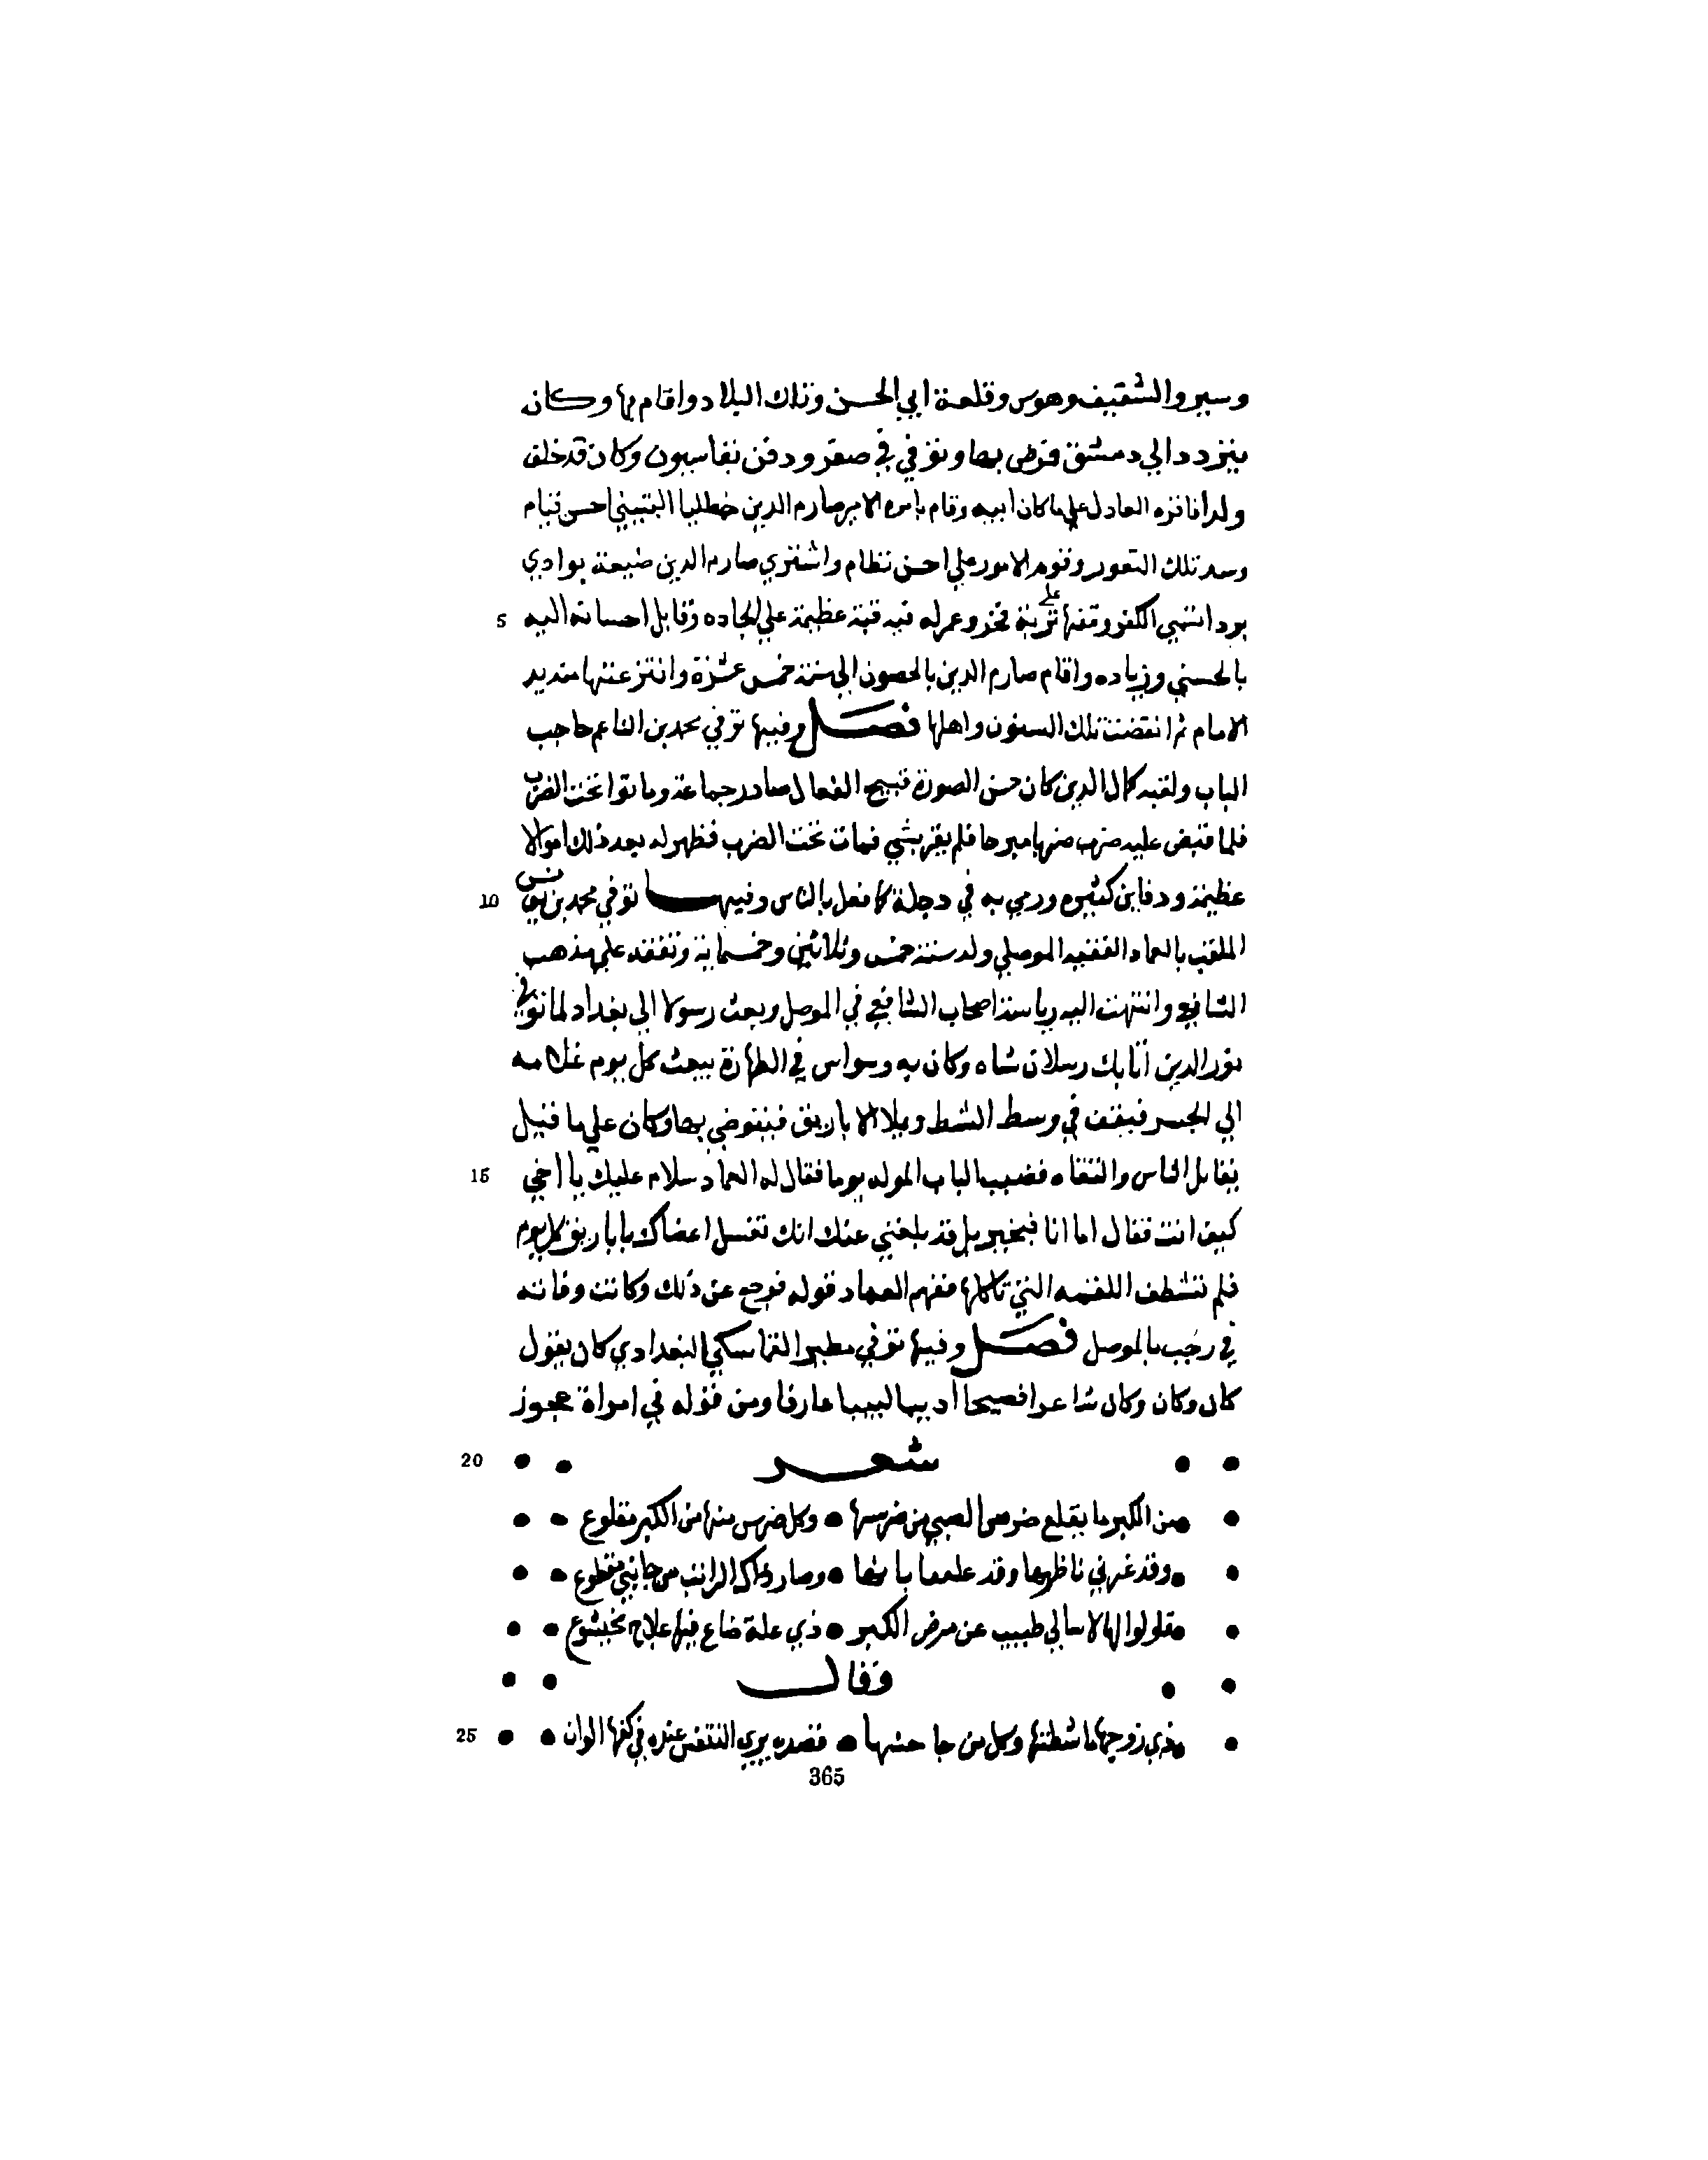 وسير والشقيف وهوس وقلعة ابي الحسن وتلك البلاد واقام بها وكان
يتردد الي دمشق فرض بها وتوفي في صفر ودفن بقاسيون وكان قد خلف
ولدا فاقره العادل علي ما كان ابيه وقام بامره الامير صارم الدين خطلبا التبنيني احسن قيام
وسد تلك الثغور وقوم الامور علي احسن نظام واشتري صارم الدين ضيعة بوادي
5 بردا تسمي الكفر وقفها علي تربة فخر وعمر له فيه قبة عظيمة علي الجاده وقابل احسانه اليه
بالحسني وزياده واقام صارم الدين بالحصون الي سنة خمس عشرة وانتزعتها منه يد
الامام ثم انقضت تلك السنون واهلها فصل وفيها توفي محمد بن الناعم حاجب
الباب ولقبه كمال الدين كان حسن الصورة قبيح الفعال صادر جماعة وماتوا تحت الضرب
فلما قبض عليه ضرب ضربا مبرحا فلم يقر بشي فمات تحت الضرب فظهر له بعد ذلك اموالا
10 عظيمة ودفاين كثيره ورمي به في دجلة كما فعل بالناس وفيها توفي محمد بن يونس
الملقب بالعماد الفقيه الموصلي ولد سنة خمس وثلاثين وخمسماية وتفقه علي مذهب
الشافعي وانتهت اليه رياسة اصحاب الشافعي في الموصل وبعث رسولا الي بغداد لما توفي
نور الدين اتابك رسلان شاه وكان به وسواس في الطهارة يبعث كل يوم غلامه
الي الجسر فيقف في وسط الشط ويملا الاباريق فيتوضي بها وكان علي ما قيل
15 يعامل الناس فقضيب البان الموله يوما فقال له العماد سلام عليك يا اخي
كيف انت فقال اما انا فبخير بل قد بلغني عنك انك تغسل اعضاك باباريق كل يوم
فلم تنشطف اللقمه التي تاكلها ففهم العماد قوله فرجع عن ذلك وكانت وفاته
في رجب بالموصل فصل وفيها توفي البغدادي كان يقول
كان وكان وكان شاعرا فصيحا اديبا لبيبا عارفا ومن قوله في امراة عجوز
20 شعر
من الكبر ما يقلع ضرس الصبي من ضرسها وكل ضرس منها من الكبر مقلوع
وقد غرني ناظرها وقد علمها بانها وصار ذاك الراتب من جانبي مقطوع
فقولوا لها لا تسالي طبيب عن مرض الكبر ذي علة ضاع فيها علاج بختيشوع
وقال
25 هذي زوجها ماشطتها وكل من جا حنها قصده يري النقش عنده في كفها الوان
365